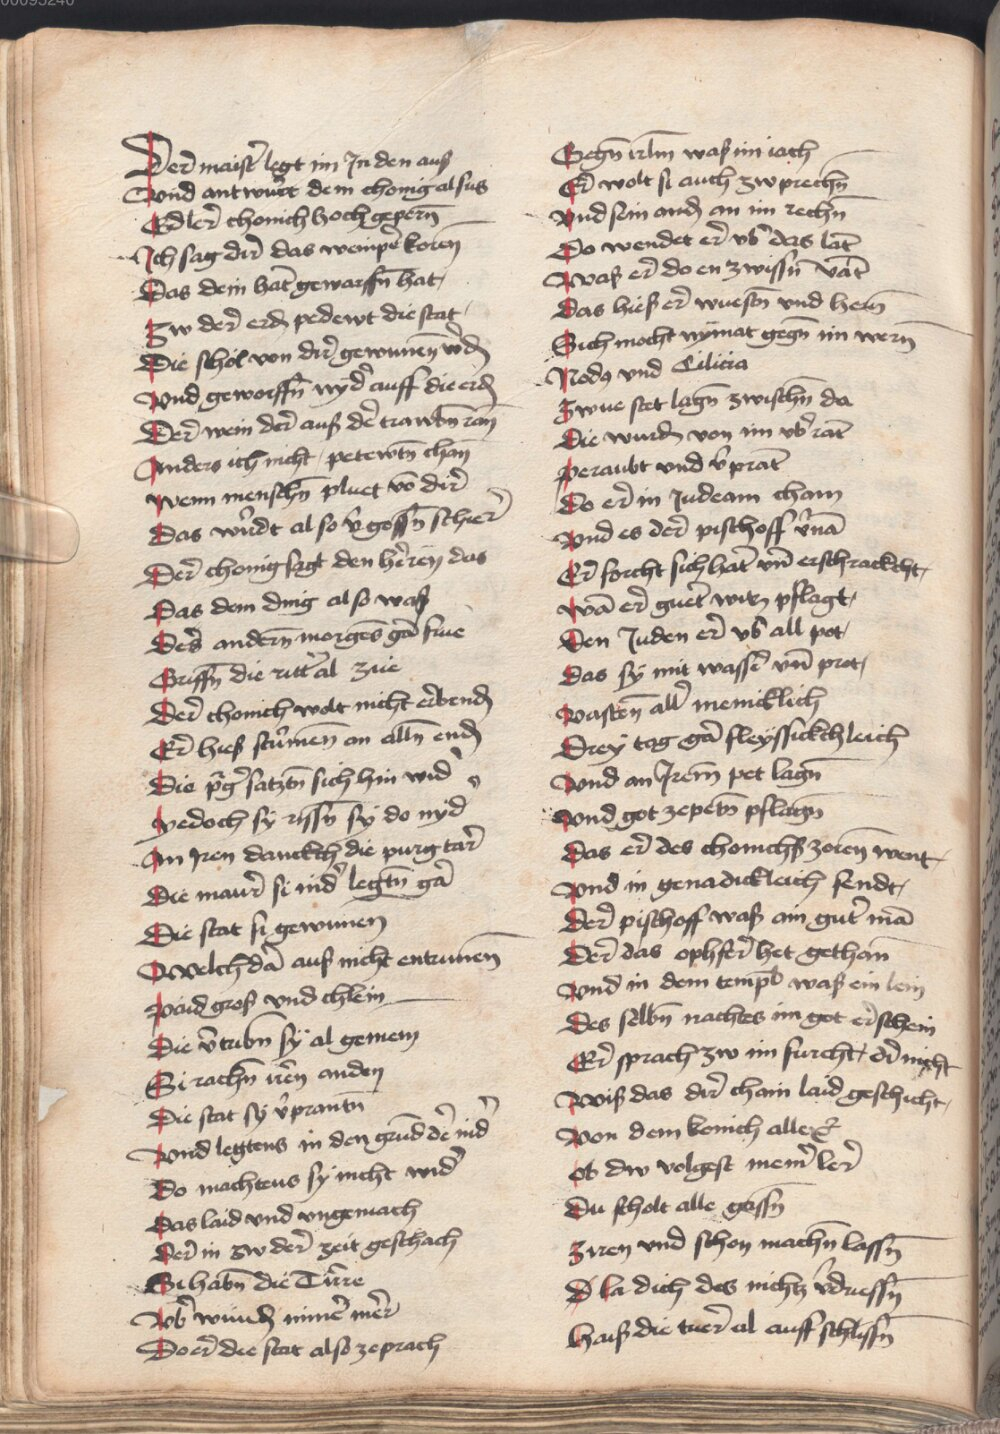 00095240
Der maistˀ legt im Jn den auß
Vnd antwurt dem chonig alsus
Edler chonich hoch geporn̄
Ich sag dir das weinpeˀ koren
Das dein hāt gewarffn̄ hat
Zw der erd pedewt die stat
Die schol von dir gewunen wˀdn̄
Vnd geworffn̄ nydˀ auff die erd
Der wein der auß deˀ trawbn̄ ran
Anders ich nicht petewtn̄ chan
wenn menschn̄ pluet vō dir
Das wirdt also vˀgossn̄ schier
Der chonig sagt den herēn das
Das dem ding also waß
Des andern̄ morgēs gā frue
Griffn̄ die rittˀ al zue
Der chonich wolt nicht erbendn̄
Er hieß stürmen̄ an alln̄ endn̄
Die pˀgˀ satztn̄ sich hin widˀ
yedoch sy rissn̄ sy do nydˀ
An Jren danckch die purg tar
Die maur si nidˀ legtn̄ gā
Die stat si gewunen
Welch dā auß nicht entrunen̄
paid groß vnd chlein
Die vˀtribn̄ sy al gemein
Si rachn̄ iren anden
Die stat sy vˀprantn̄
Vnd legtens in den grūd deˀ nidˀ
Do machtens sy nicht widˀ
Das laid vnd vngemach
Der in zw der zeit geschach
Si habn̄ die Türre
Vbˀ wundn̄ nimeˀ mer
Do er die stat also zeprach
Gegn̄ irl̄m waß im iach
Er wolt si auch zwprechn̄
Vnd sein andn̄ an im rechn̄
Do wendet er vbˀ das lāt
Waß er do en zwissn̄ vāt
Das hieß er wuestn̄ vnd hern̄
Sich mocht nymāt gegn̄ im wern̄
Rodꝰ vnd Cilicia
Zwue stet lagn̄ zwischn̄ da
Die wurdn̄ von im vbˀrāt
Peraubt vnd vˀprāt
Do er in Judeam cham
Vnd es der pischoff vˀnā
Er forcht sich hāt vn̄ erschrackcht
wā er guet witz pflagt
Den Juden er vbˀall pot
Das sy mit wasser vn̄ prot
vasten̄ allˀ menicklich
Drey tag gā fleyssickchleich
Vnd an Jrem̄ pet lagn̄
Vnd got zepetn̄ pflagn̄
Das er des chonichß zoren̄ went
Vnd in genadickleich sendt
Der pischoff waß ain gutˀ mā
Der das ophfer het gethan
Vnd in dem tempˀl waß ein lein
Des selbn̄ nachtes im got erschein
Er sprach zw im furcht dir nicht
Wiß das dir chain laid geschicht
Von dem konich allexˀ
Ob dw volgest meinˀ ler
Du scholt alle gassn̄
Ziren vnd schon machn̄ lassn̄
Vˀ la dich des nichtz vˀdriessn̄
Haiß die tuer al auff schlissn̄